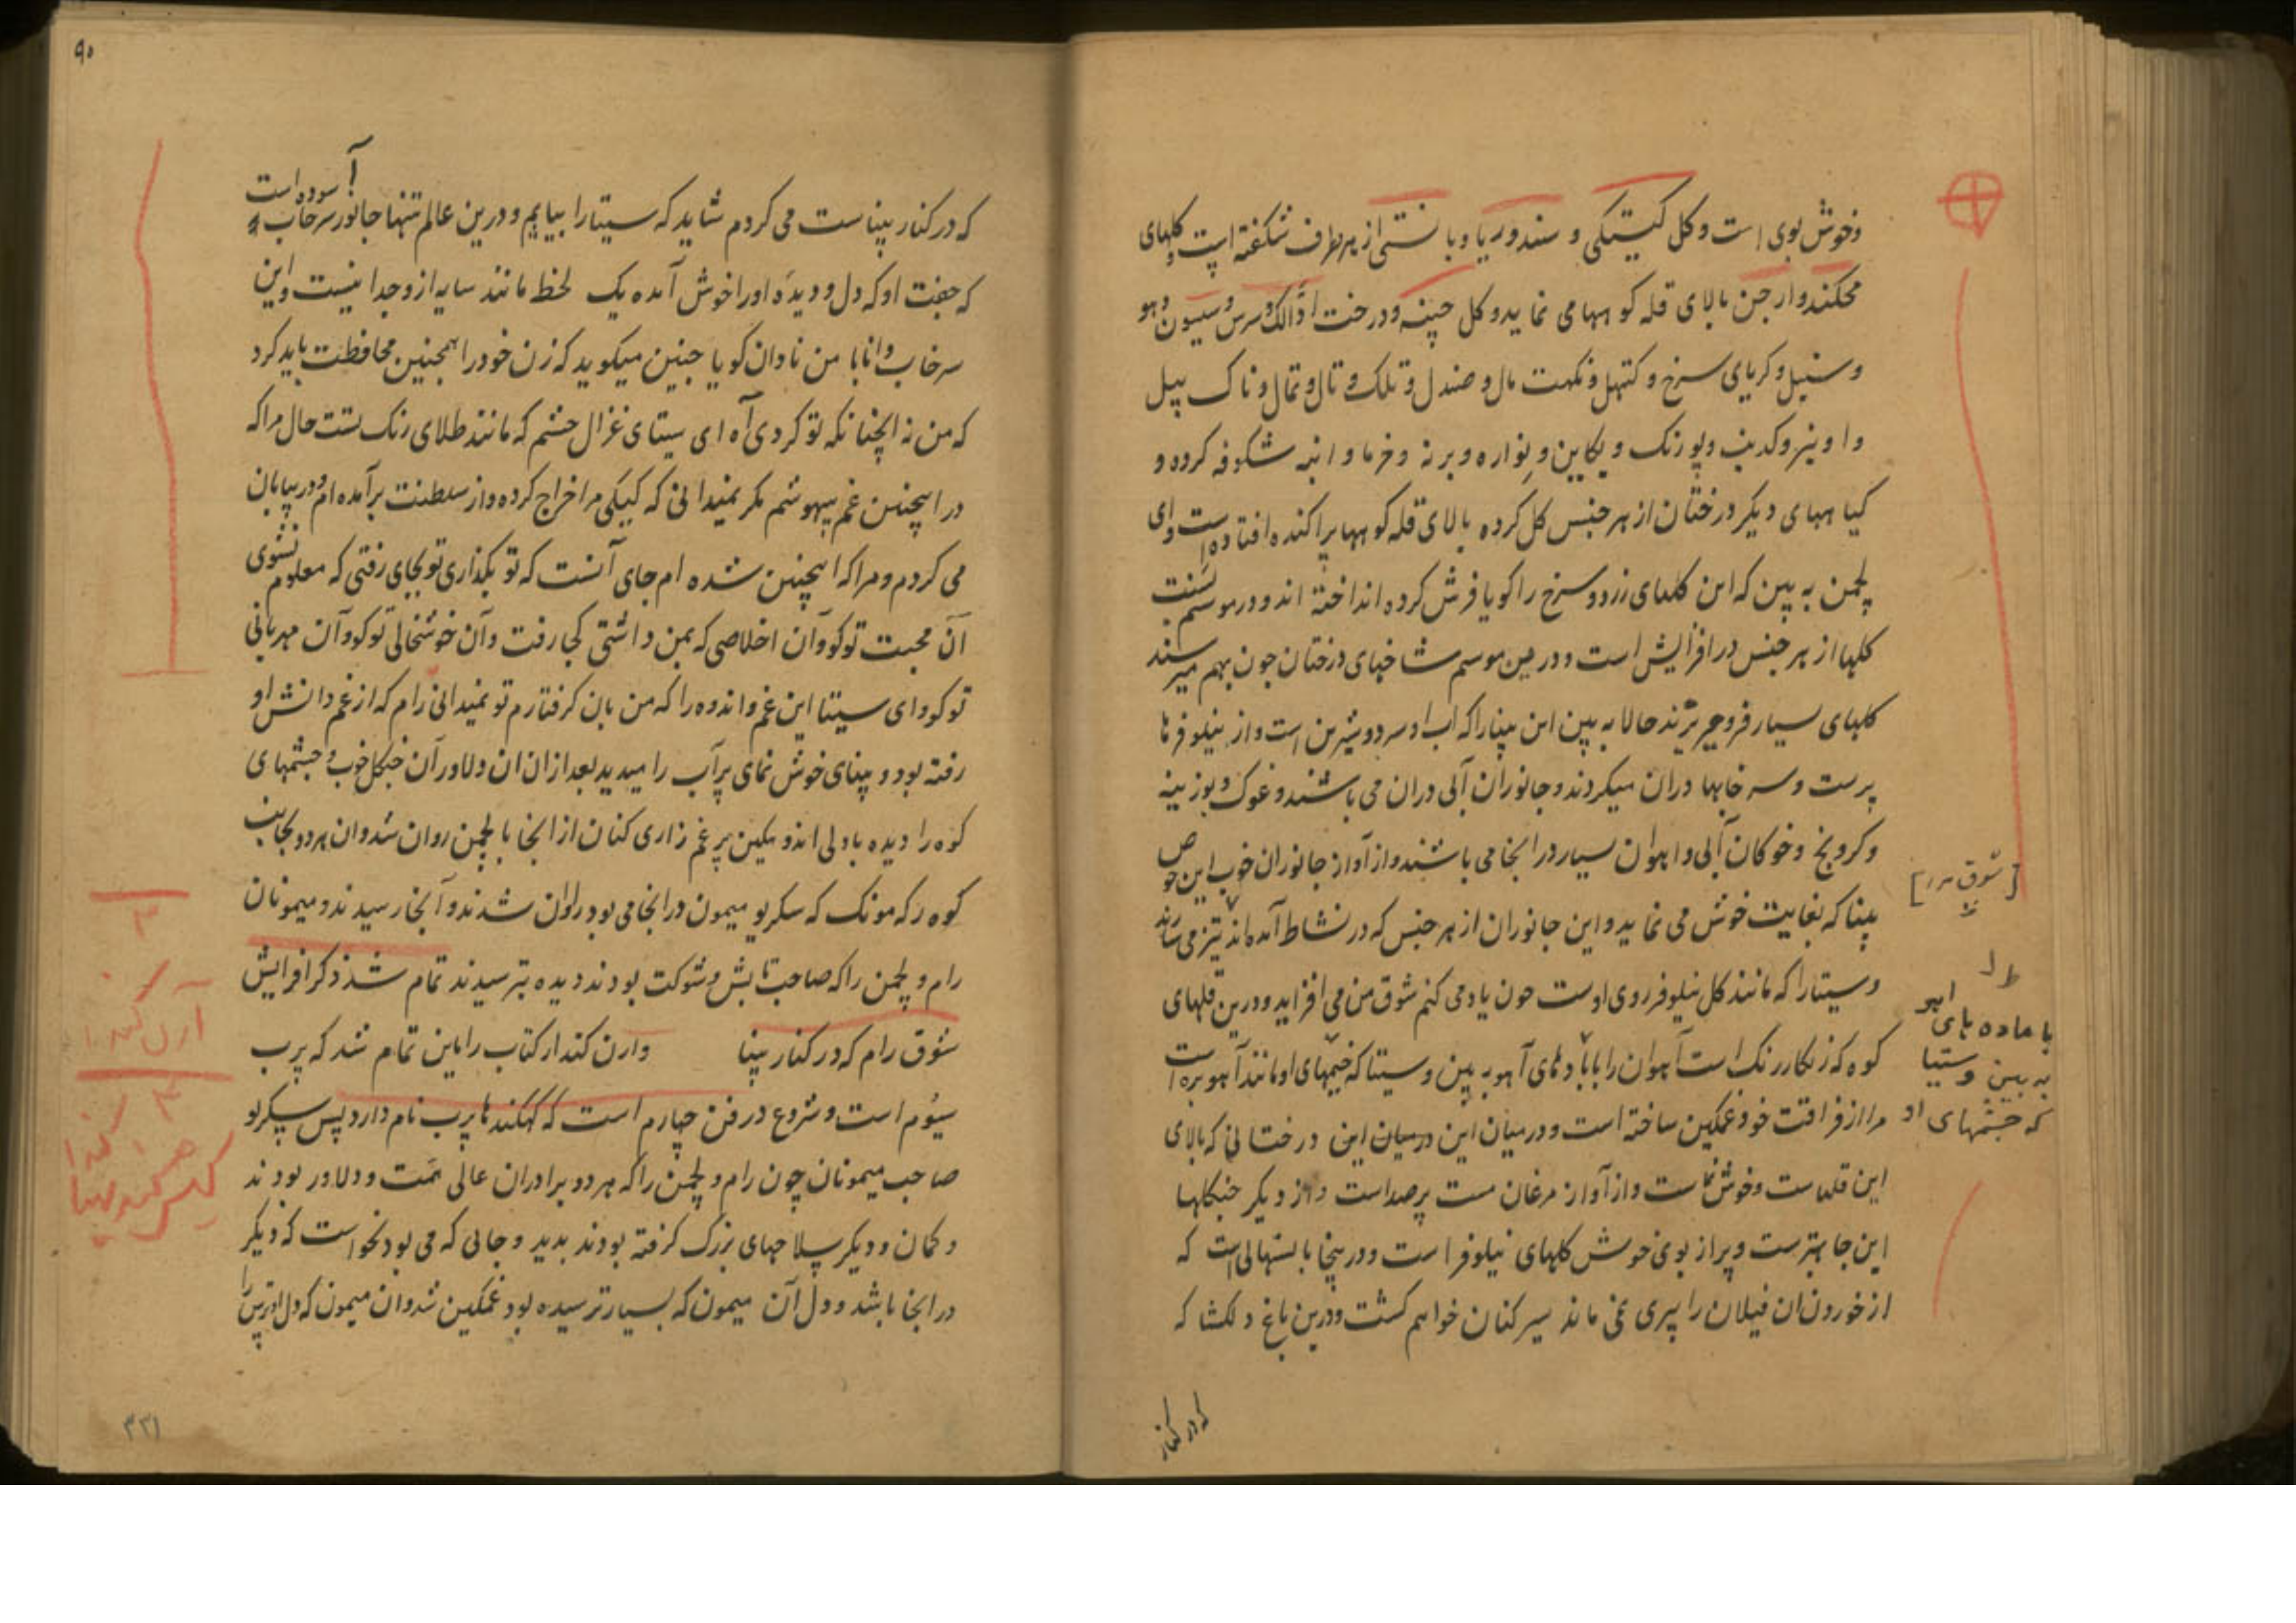 وخوش بوی است و کل کیتیکی و سندوریا و با نستی از هر طرف شکفته است و کلهای
محکند وارجن بالای قله کوهها می نماید و کل چنپه و درخت اوالک و سرس و سیسون و هو
و سنبل و کریای سرخ و کتهل و نکهت مال و صندل و تلک و تال و تمال و ناک پیل
کیا ههای دیکر درختان از هر جنس کل کرده بالای قله کوهها پراکنده افتاده است و ای
لچمن به بین که این کلهای زرد و سرخ را کویا فرش کرده انداخته اند و در موسم بسنت
کلها از هر جنس در افزایش است و درین موسم شاخهای درختان چون بهم میرسند
کلهای بسیار فرو میریزند حالا به بین این پنپا را که اب او سرد و شیرین است و از نیلوفرها
پرست و سرخابها دران میکردند و جانوران آبی دران می باشند و غوک و بوزینه
و کروبخ و خوکان آبی و اهوان بسیار در انجا می باشند و از آواز جانوران خوب این حوض
پنپا که بغایت خوش می نماید و این جانوران از هر جنس که در نشاط آمده اند
و سیتا را که مانند کل نیلوفر روی اوست چون یاد می کنم شوق من می افزاید و درین قلهای
کوه که زنکار رنک است آهوان را با مادهای آهو به بین و سیتا که چشمهای او مانند آهو بره است
مرا از فراقت خود غمکین ساخته است و درمیان این درمیان این درختانی که بالای
این قلهاست و خوش نماست و از آواز مرغان مست پرصداست و از دیکر جنکلها
این جا بهترست و پر از بوی خوش کلهای نیلوفر است و در پنجا بالشهالی است که
از خوردن ان فیلان را پیری نمی ماند سیر کنان خواهم کشت و درین باغ دلکشا که
که در کنار
[شوق مرا]
با ماده های اهو
به بین و سیتا
که چشمهای او
۹۰
آسوده است
که در کنار پنپا ست می کردم شاید که سیتا را بیابیم و درین عالم تنها جانور سرخاب
که جفت او که دل و دیده او را خوش آمده یک لحظه مانند سایه ازو جدا نیست و این
سرخاب دانا با من نادان کویا چنین میکوید که زن خود را همچنین محافظت باید کرد
که من نه اینچنانکه تو کردی آه ای سیتای غزال چشم که مانند طلای رنک تست حال مرا که
در اینچنین غم بیهوشم مکر نمیدانی که کیکی مرا اخراج کرده و از سلطنت برآمده ام و در بیابان
می کردم و مرا که اینچنین شده ام جای آنست که تو بکذاری تو بجای رفتی که معلوم نشوی
آن محبت تو کو و آن اخلاصی که بمن داشتی کجا رفت و آن خوشخالی تو کو و آن مهربانی
تو کو و ای سیتا این غم و اندوه را که من بان کرفتارم تو نمیدانی رام که از غم دانش او
رفته بود و پنپای خوش نمای پر آب را میدید بعد ازان ان دلاور آن جنکل خوب و چشمهای
کوه را دیده با دلی اندوهکین پر غم زاری کنان از انجا با لچمن روان شد و ان هر دو بجانب
کوه رکه مونک که سکریو میمون در انجا می بود روان شدند و آنجا رسیدند و میمونان
رام و لچمن را که صاحب تابش و شوکت بودند دیده بترسیدند تمام شد ذکر افزایش
شوق رام که در کنار پنپا وارن کند از کتاب راماین تمام شد که پرب
سیوم است و شروع در فن چهارم است که کهکندها پرب نام دارد پس سکریو
صاحب میمونان چون رام و لچمن را که هر دو برادران عالی همت و دلاور بودند
و کمان و دیکر سلاحهای بزرک کرفته بودند بدید و جائی که می بود نخواست که دیکر
در انجا باشد و دل آن میمون که بسیار ترسیده بود غمکین شد و ان میمون که دل او ترس را
۳
آرن کندا
۴
۳۳۱